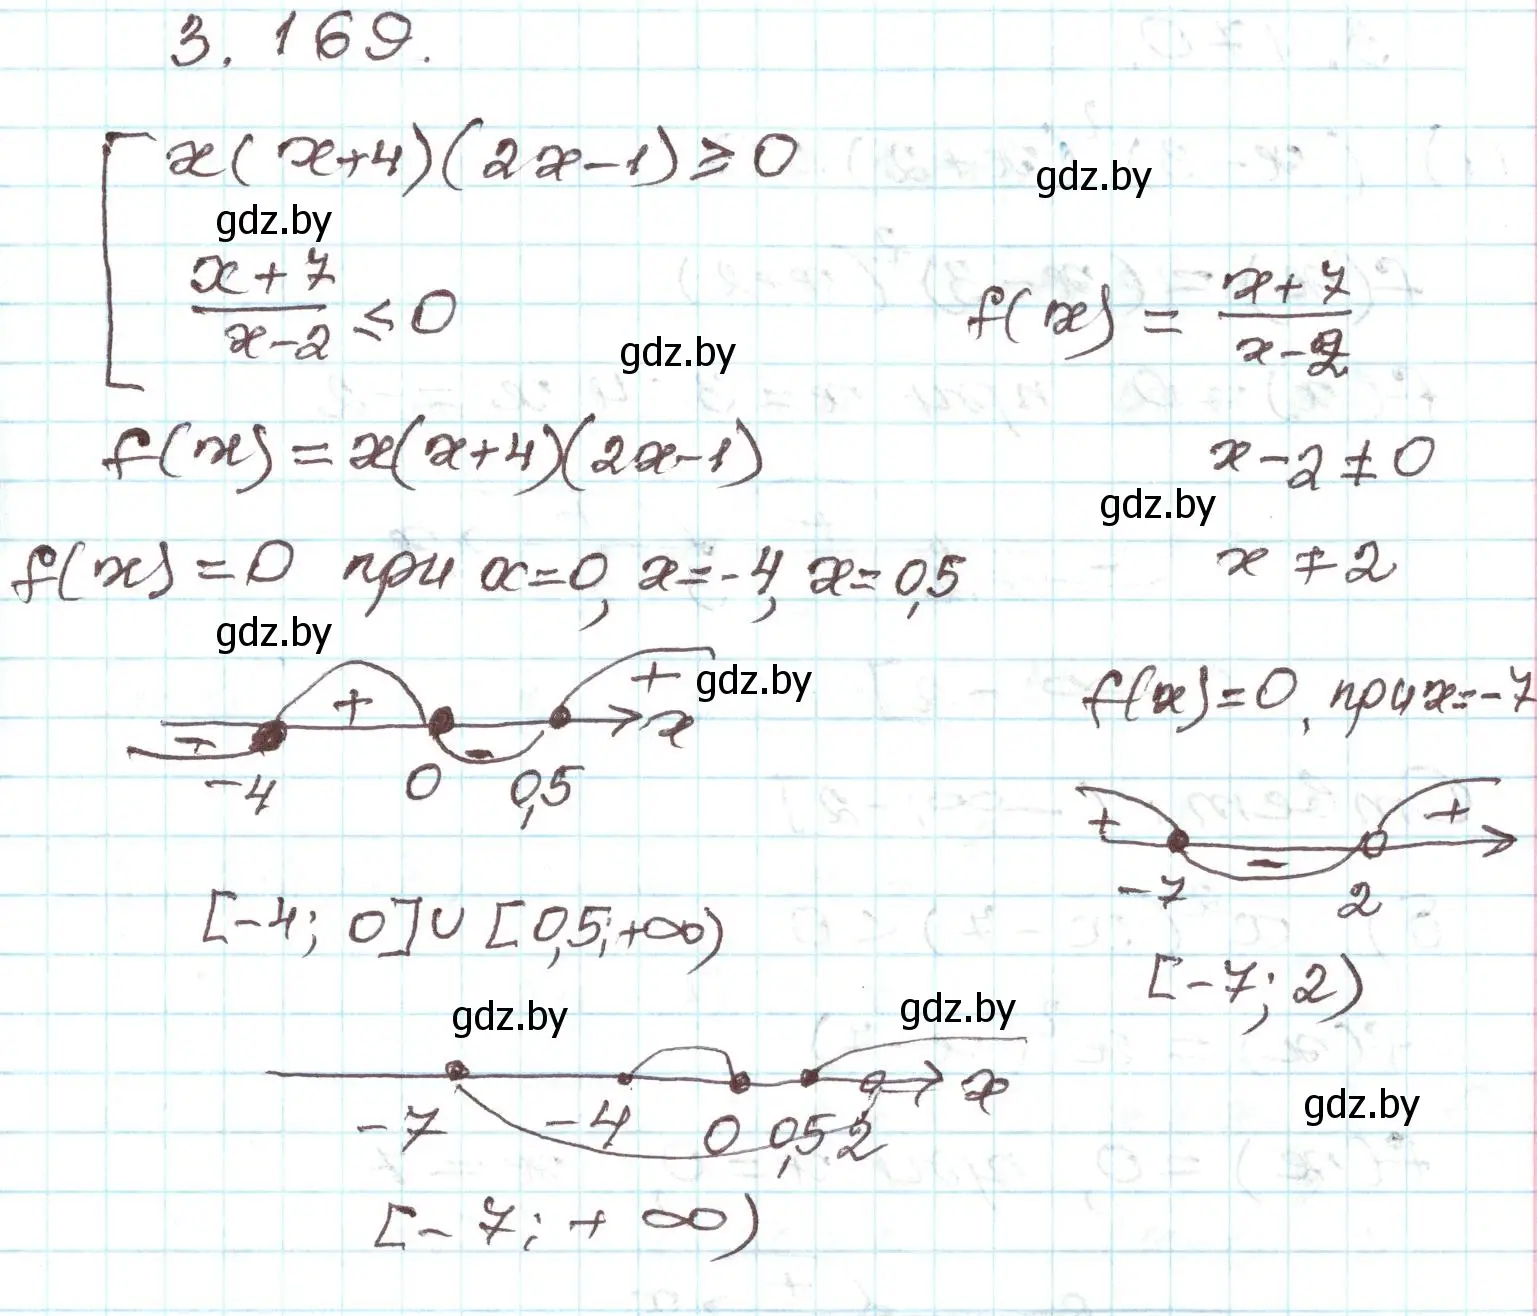 3.169.
[ x(x+4)(2x-1) ≥ 0
gdz.by
gdz.by
(x+7)/(x-2) ≤ 0
gdz.by
f(x) = (x+7)/(x-2)
f(x) = x(x+4)(2x-1)
x-2 ≠ 0
gdz.by
f(x) = 0 при x=0, x=-4, x=0,5
x ≠ 2
gdz.by
gdz.by
+ +
- - x
-4 0 0,5
f(x)=0, при x=-7
+ - +
-7 2
[-4; 0] ∪ [0,5; +∞)
[-7; 2)
gdz.by
gdz.by
x
-7 -4 0 0,5 2
gdz.by
[-7; +∞)